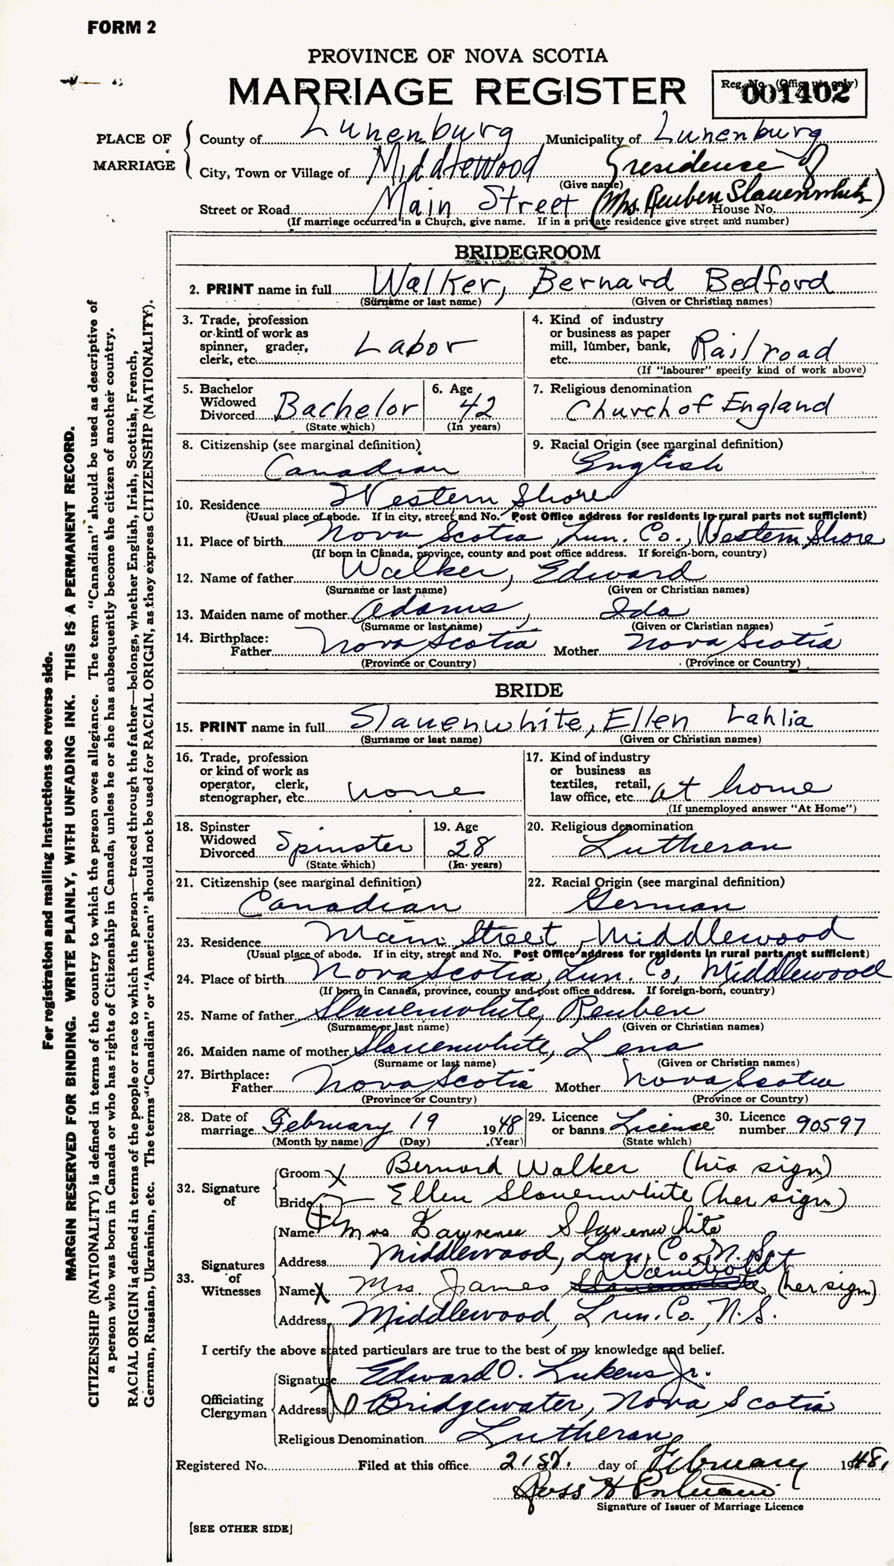 FORM 2
PROVINCE OF NOVA SCOTIA
MARRIAGE REGISTER
Reg. No. (Office use only)
001402
PLACE OF MARRIAGE
County of Lunenburg Municipality of Lunenburg
City, Town or Village of Middlewood (residence of
(Give name)
Street or Road Main Street Mrs. Reuben Slauenwhite) House No.
(If marriage occurred in a Church, give name. If in a private residence give street and number)
BRIDEGROOM
2. PRINT name in full Walker, Bernard Bedford
(Surname or last name) (Given or Christian names)
3. Trade, profession or kind of work as spinner, grader, clerk, etc. Labor
4. Kind of industry or business as paper mill, lumber, bank, etc. Railroad
(If "labourer" specify kind of work above)
5. Bachelor Widowed Divorced Bachelor
(State which)
6. Age 42
(In years)
7. Religious denomination Church of England
8. Citizenship (see marginal definition) Canadian
9. Racial Origin (see marginal definition) English
10. Residence Western Shore
(Usual place of abode. If in city, street and No. Post Office address for residents in rural parts not sufficient)
11. Place of birth Nova Scotia, Lun. Co., Western Shore
(If born in Canada, province, county and post office address. If foreign-born, country)
12. Name of father Walker, Edward
(Surname or last name) (Given or Christian names)
13. Maiden name of mother Adams, Ida
(Surname or last name) (Given or Christian names)
14. Birthplace: Father Nova Scotia Mother Nova Scotia
(Province or Country) (Province or Country)
BRIDE
15. PRINT name in full Slauenwhite, Ellen Lahlia
(Surname or last name) (Given or Christian names)
16. Trade, profession or kind of work as operator, clerk, stenographer, etc. none
17. Kind of industry or business as textiles, retail, law office, etc. at home
(If unemployed answer "At Home")
18. Spinster Widowed Divorced Spinster
(State which)
19. Age 28
(In years)
20. Religious denomination Lutheran
21. Citizenship (see marginal definition) Canadian
22. Racial Origin (see marginal definition) German
23. Residence Main Street, Middlewood
(Usual place of abode. If in city, street and No. Post Office address for residents in rural parts not sufficient)
24. Place of birth Nova Scotia, Lun. Co, Middlewood
(If born in Canada, province, county and post office address. If foreign-born, country)
25. Name of father Slauenwhite, Reuben
(Surname or last name) (Given or Christian names)
26. Maiden name of mother Slauenwhite, Lena
(Surname or last name) (Given or Christian names)
27. Birthplace: Father Nova Scotia Mother Nova Scotia
(Province or Country) (Province or Country)
28. Date of marriage February 19 1948
(Month by name) (Day) (Year)
29. Licence or banns License
(State which)
30. Licence number 90597
32. Signature of
Groom X Bernard Walker (his sign)
Bride Ellen Slauenwhite (her sign)
33. Signatures of Witnesses
Name Mrs Lawrence Slauenwhite
Address Middlewood, Lun. Co. N.S.
Wamboldt
Name X Mrs James Slauenwhite (her sign)
Address Middlewood, Lun. Co., N.S.
I certify the above stated particulars are true to the best of my knowledge and belief.
Officiating Clergyman
Signature Edward O. Lukens Jr.
Address Bridgewater, Nova Scotia
Religious Denomination Lutheran
Registered No. Filed at this office 21st. day of February 1948.
Signature of Issuer of Marriage Licence
[SEE OTHER SIDE]
For registration and mailing instructions see reverse side.
MARGIN RESERVED FOR BINDING. WRITE PLAINLY, WITH UNFADING INK. THIS IS A PERMANENT RECORD.
CITIZENSHIP (NATIONALITY) is defined in terms of the country to which the person owes allegiance. The term "Canadian" should be used as descriptive of
a person who was born in Canada or who has rights of Citizenship in Canada, unless he or she has subsequently become the citizen of another country.
RACIAL ORIGIN is defined in terms of the people or race to which the person—traced through the father—belongs, whether English, Irish, Scottish, French,
German, Russian, Ukrainian, etc. The terms "Canadian" or "American" should not be used for RACIAL ORIGIN, as they express CITIZENSHIP (NATIONALITY).